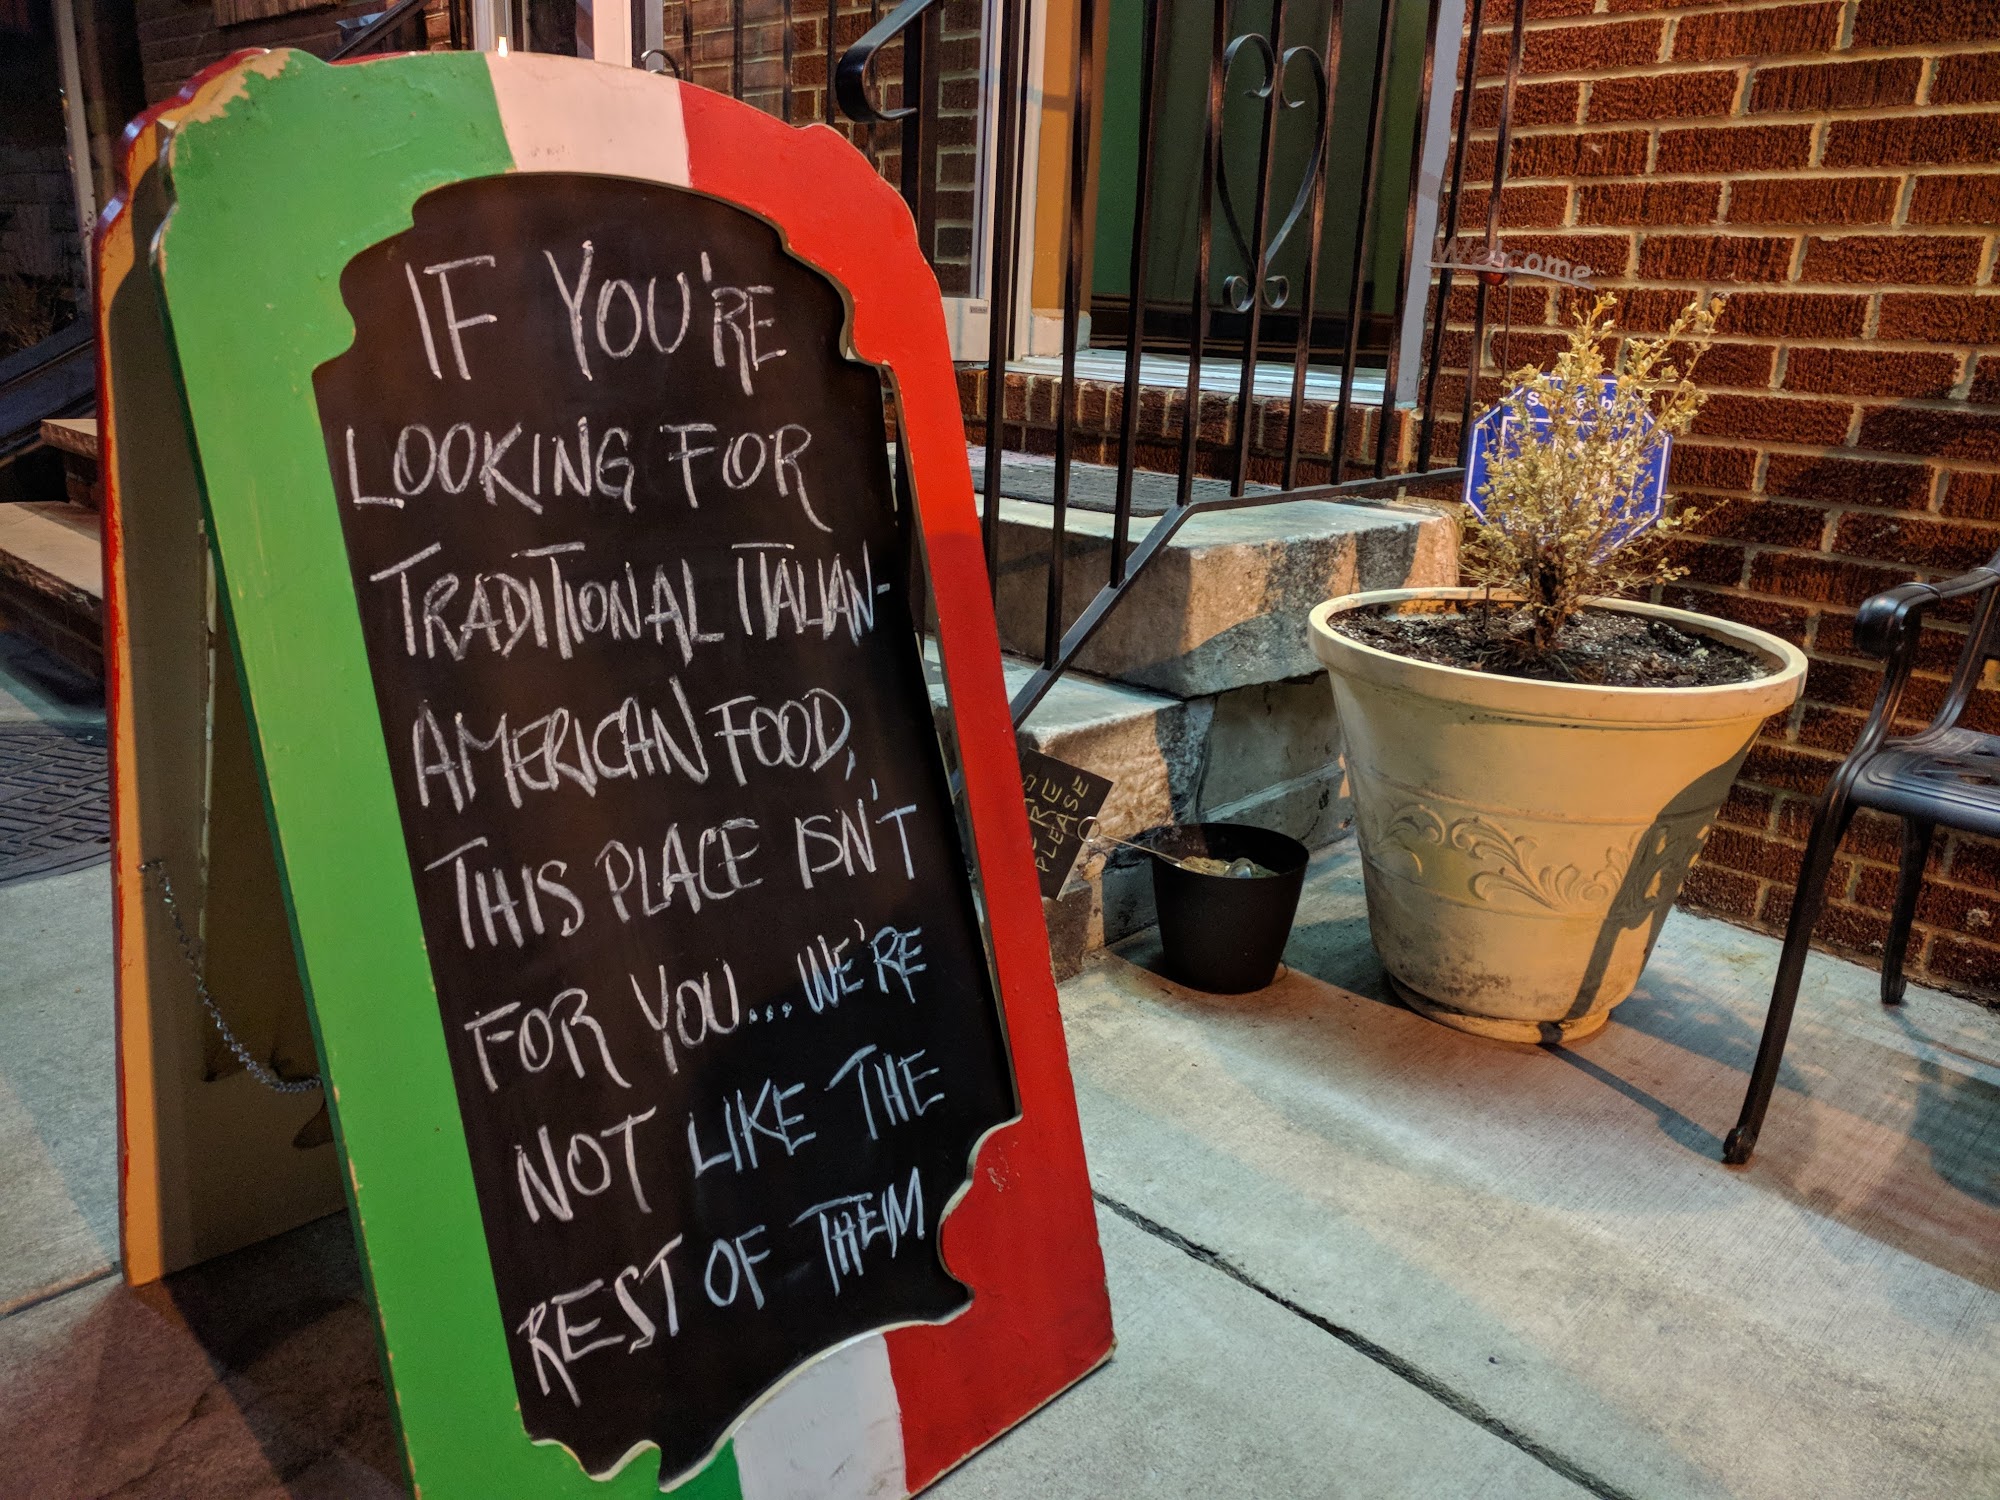 IF YOU'RE
LOOKING FOR
TRADITIONAL ITALIAN-
AMERICAN FOOD,
THIS PLACE ISN'T
FOR YOU... WE'RE
NOT LIKE THE
REST OF THEM
Welcome
PLEASE